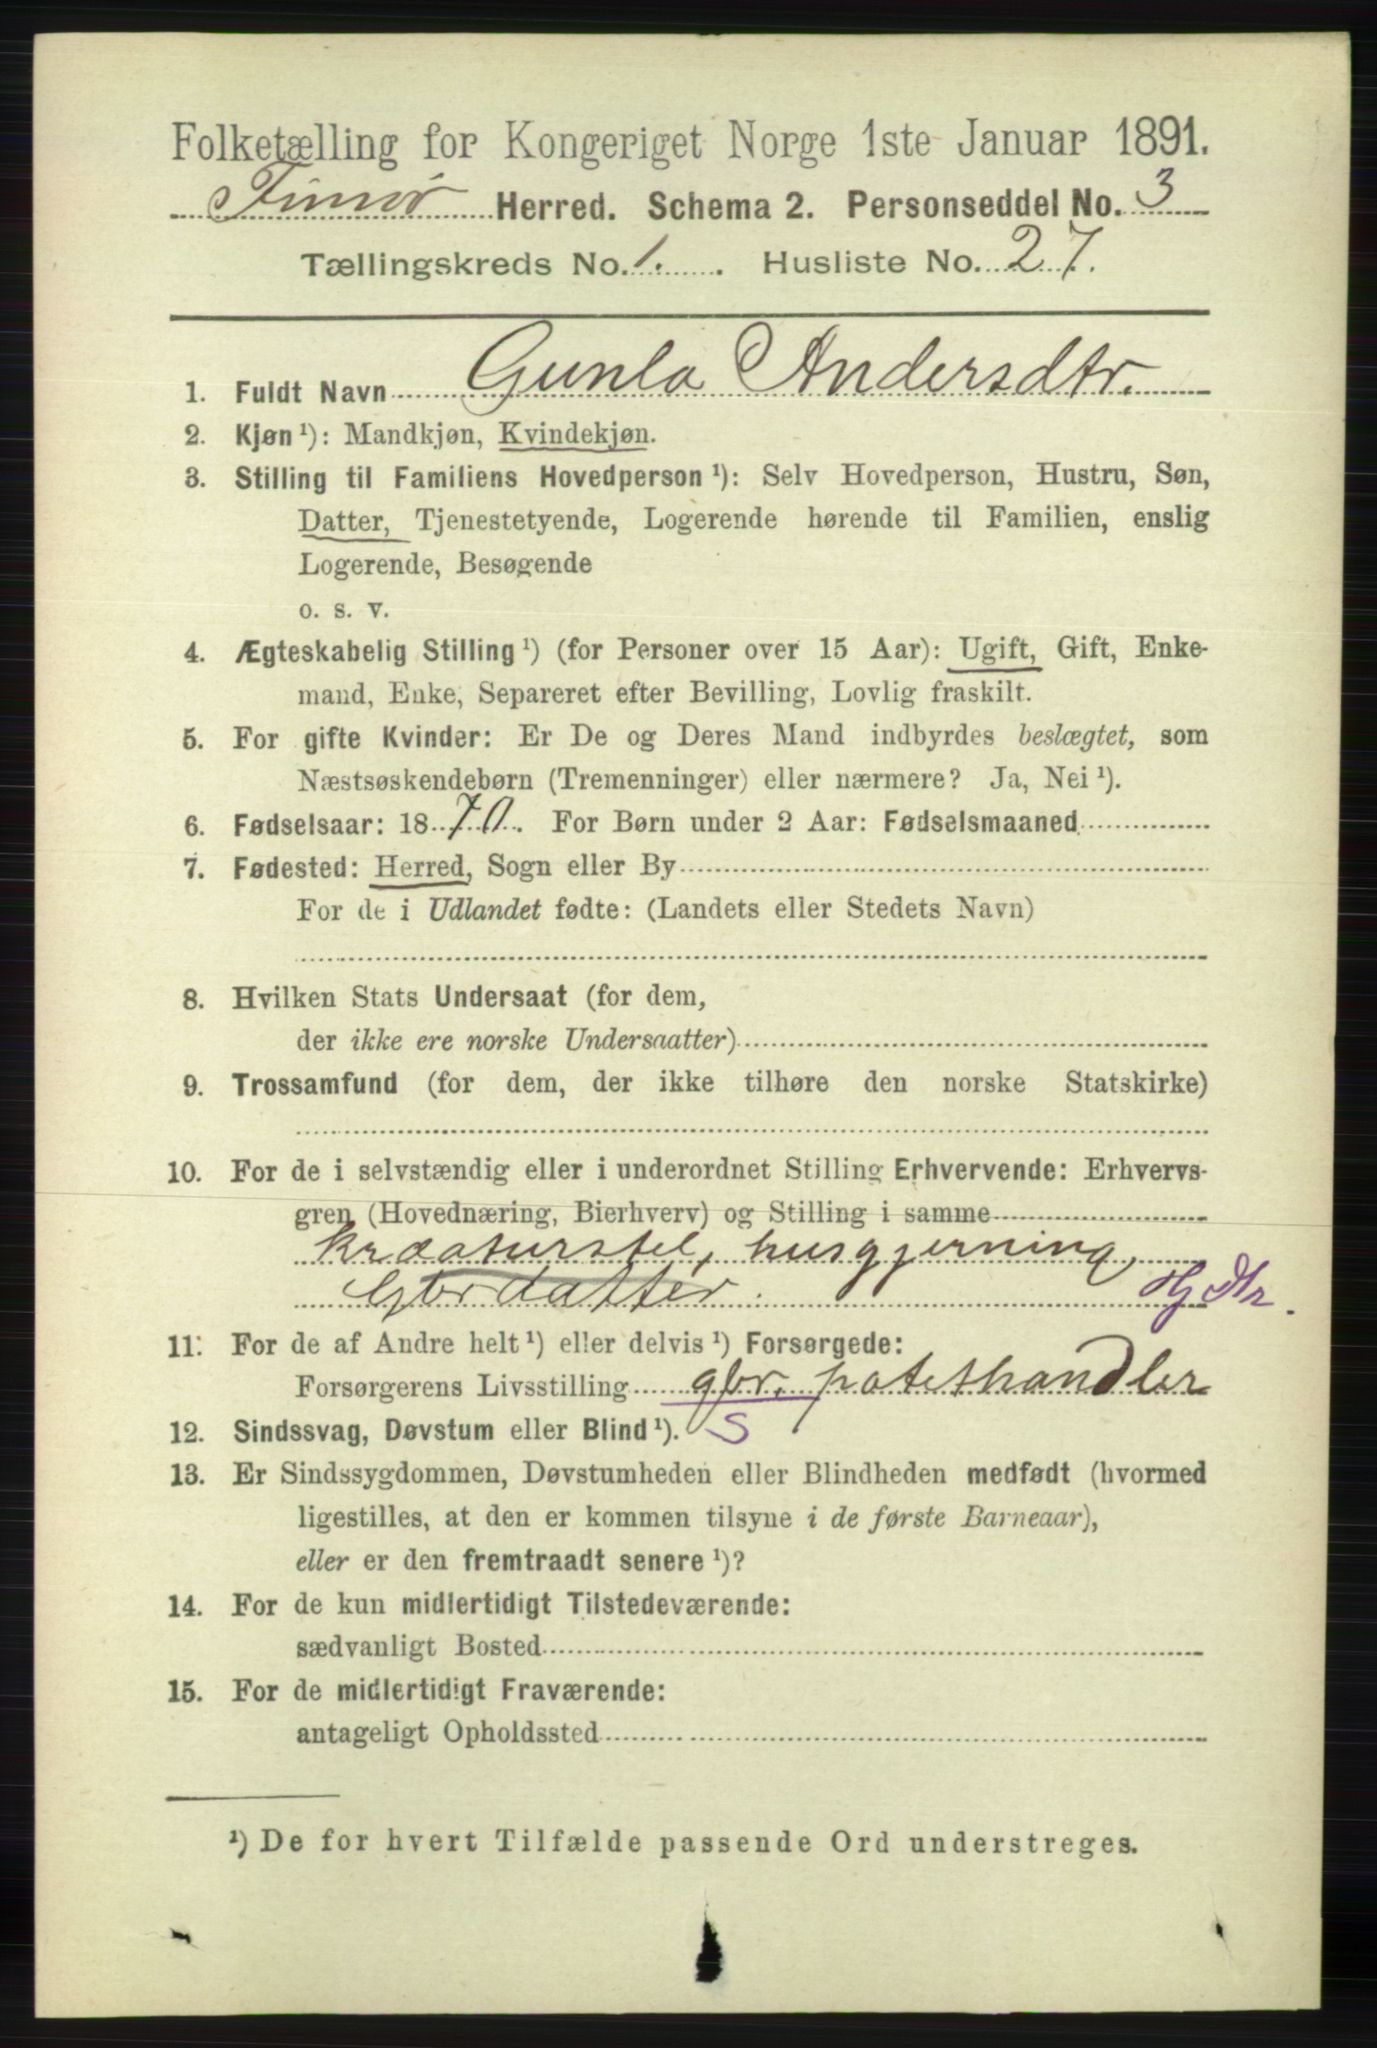 Folketælling for Kongeriget Norge 1ste Januar 1891.
Finnø Herred. Schema 2. Personseddel No. 3
Tællingskreds No. 1. Husliste No. 27.
1. Fuldt Navn Gunla Andersdtr.
2. Kjøn ¹): Mandkjøn, Kvindekjøn.
3. Stilling til Familiens Hovedperson ¹): Selv Hovedperson, Hustru, Søn,
Datter, Tjenestetyende, Logerende hørende til Familien, enslig
Logerende, Besøgende
o. s. v.
4. Ægteskabelig Stilling ¹) (for Personer over 15 Aar): Ugift, Gift, Enke-
mand, Enke, Separeret efter Bevilling, Lovlig fraskilt.
5. For gifte Kvinder: Er De og Deres Mand indbyrdes beslægtet, som
Næstsøskendebørn (Tremenninger) eller nærmere? Ja, Nei ¹).
6. Fødselsaar: 1870. For Børn under 2 Aar: Fødselsmaaned
7. Fødested: Herred, Sogn eller By
For de i Udlandet fødte: (Landets eller Stedets Navn)
8. Hvilken Stats Undersaat (for dem,
der ikke ere norske Undersaatter)
9. Trossamfund (for dem, der ikke tilhøre den norske Statskirke)
10. For de i selvstændig eller i underordnet Stilling Erhvervende: Erhvervs-
gren (Hovednæring, Bierhverv) og Stilling i samme
kræaturstel, husgjerning
Gbrdatter Hj Dtr.
11. For de af Andre helt ¹) eller delvis ¹) Forsørgede:
Forsørgerens Livsstilling gbr. potethandler
12. Sindssvag, Døvstum eller Blind ¹). S
13. Er Sindssygdommen, Døvstumheden eller Blindheden medfødt (hvormed
ligestilles, at den er kommen tilsyne i de første Barneaar),
eller er den fremtraadt senere ¹)?
14. For de kun midlertidigt Tilstedeværende:
sædvanligt Bosted
15. For de midlertidigt Fraværende:
antageligt Opholdssted
¹) De for hvert Tilfælde passende Ord understreges.